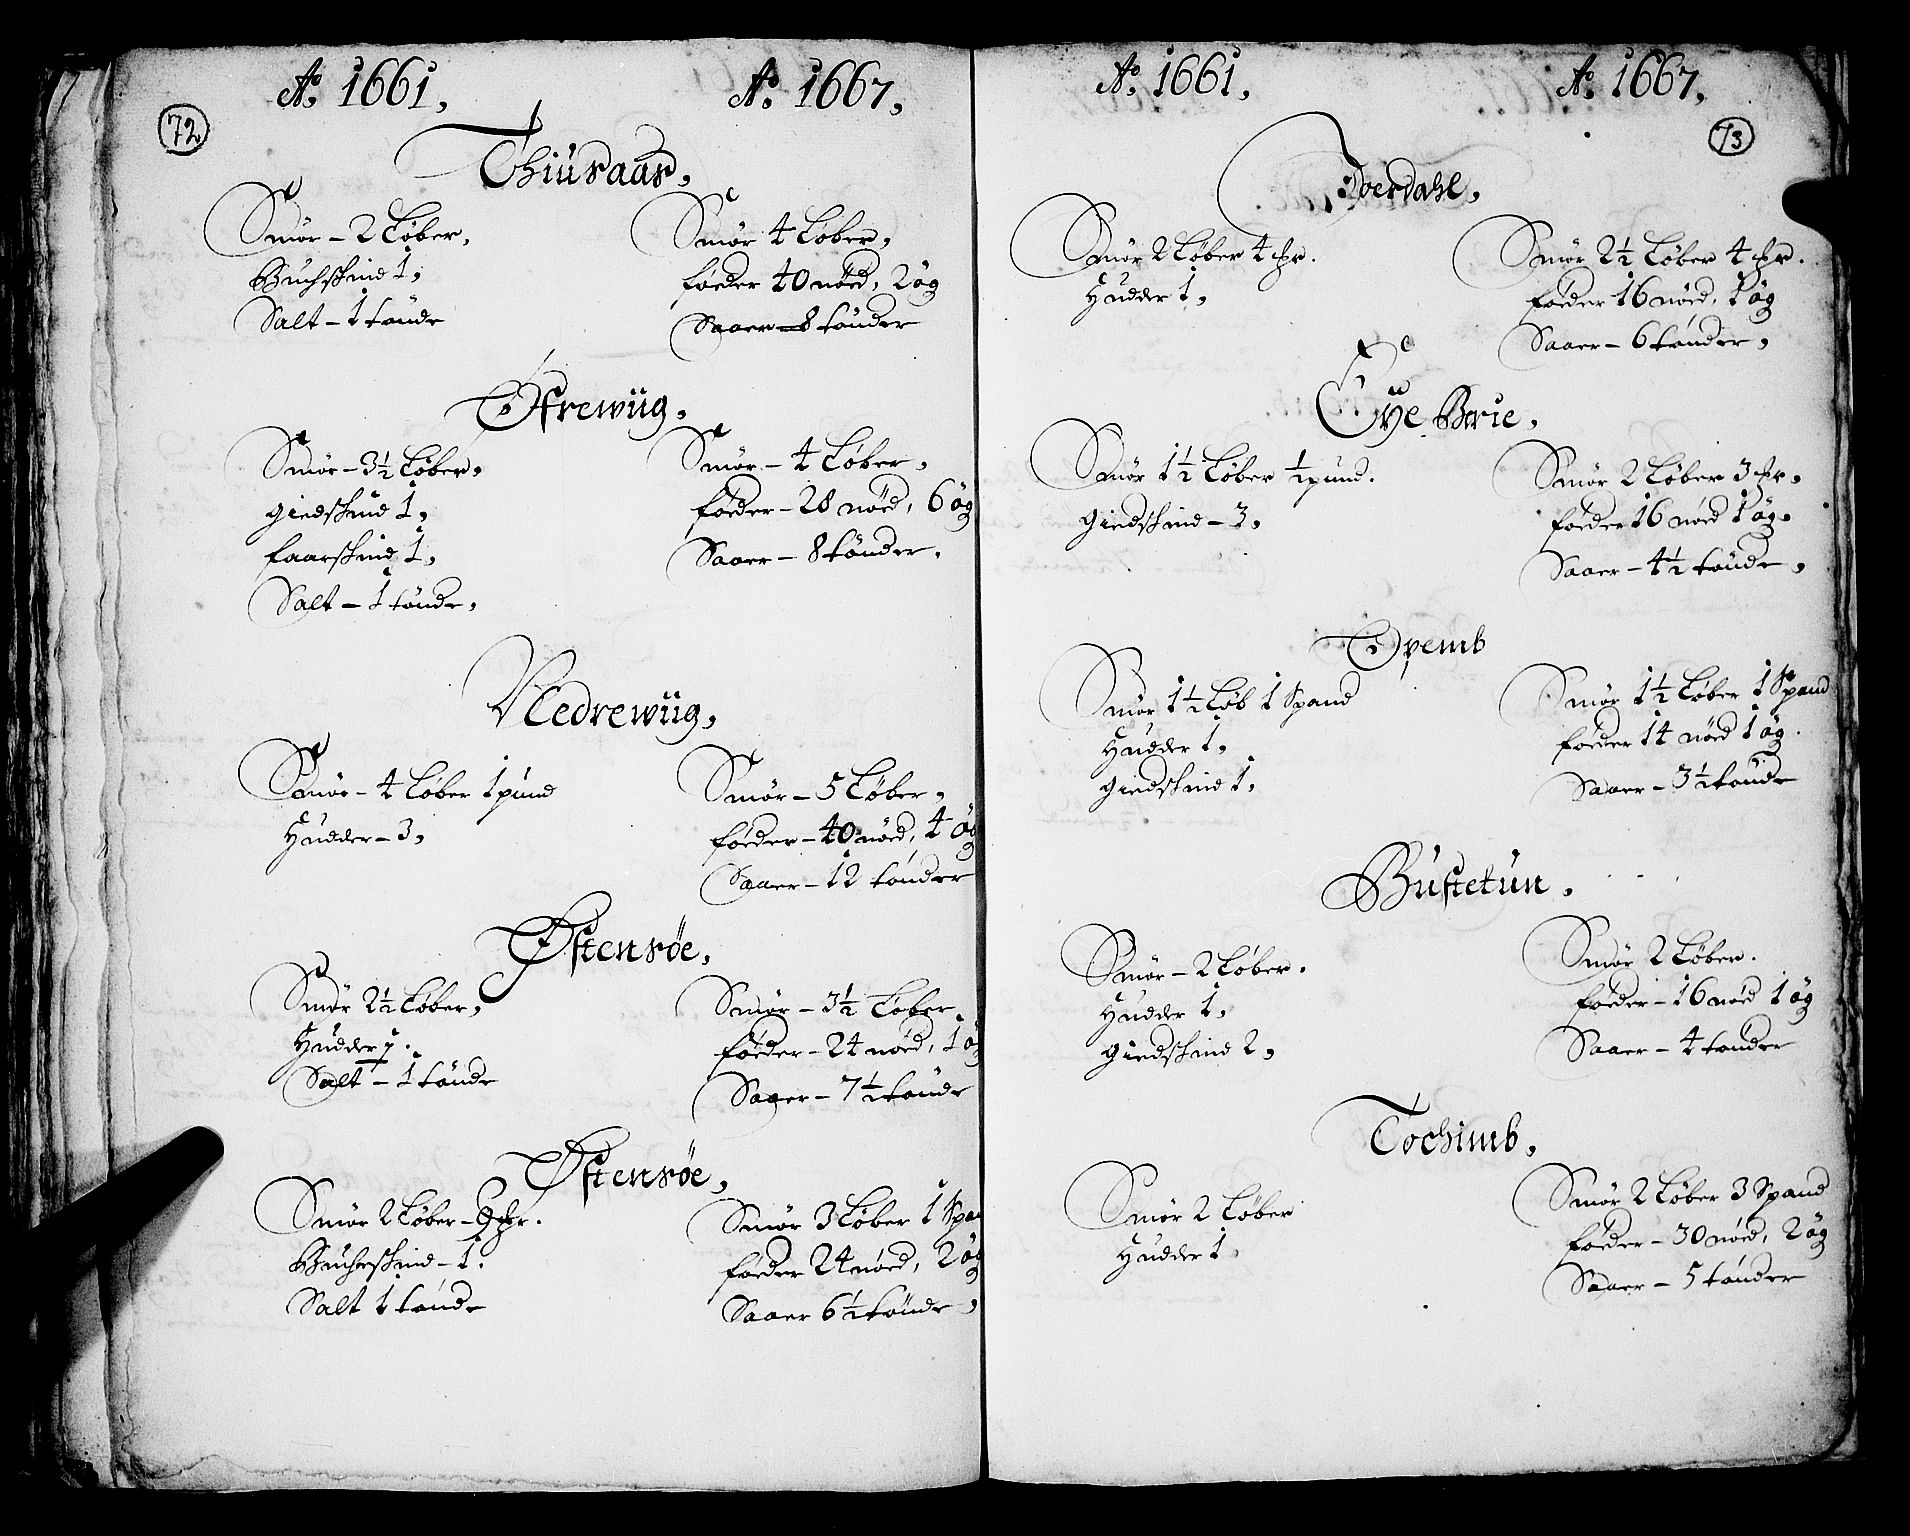 72
Ao. 1661,
Ao. 1667,
Thiuraas,
Smör – 2 Løber,
Buchskind 1,
Salt – 1 tönde
Smör 4 Løber,
föeder 40 nöed, 2 ög
Saaer – 8 tönder
Øfrewiig,
Smör – 3½ Løber,
giedskind 1,
faarskind 1,
Salt – 1 tönde,
Smör – 4 Løber,
föeder – 28 nöed, 6 ög
Saaer – 8 tönder,
Nedrewiig,
Smör – 4 Løber 1 pund
Hudder – 3,
Smör – 5 Løber,
föeder – 40 nöed, 4 ög
Saaer – 12 tönder
Østensøe,
Smör 2½ Løber,
Hudder 1.
Salt – 1 tönde
Smör – 3½ Løber,
föeder – 24 nöed, 1 ög
Saaer – 7½ tönde
Østensøe,
Smör 2 Løber –
Buchskind – 1.
Salt 1 tönde
Smör 3 Løber 1 Span
föeder 24 nöed, 2 ög
Saaer 6½ tönde,
73
Ao. 1661,
Ao. 1667,
Joerdahl,
Smör 2 Løber 4 Fr.
Hudder 1,
Smör 2½ Løber 4 Fr.
föeder 16 nöed, 1 ög
Saaer – 6 tönder,
Øye Brie,
Smör 1½ Løber ½ pund.
giedskind – 3,
Smör 2 Løber 3 Fr.
föeder 16 nöed 1 ög.
Saaer – 4½ tönde,
Opemb
Smör 1½ Løb 1 Spand
Hudder 1,
giedskind 1,
Smör 1½ Løber 1 Spand
föeder 14 nöed 1 ög.
Saaer – 3½ tönde
Bustetun,
Smör – 2 Løber.
Hudder 1,
giedskind 2,
Smör 2 Løber.
föeder – 16 nöed 1 ög
Saaer – 4 tönder
Tochimb,
Smör 2 Løber
Hudder 1
Smör 2 Løber 3 Spand
föeder – 30 nöed, 2 ög
Saaer – 5 tönder